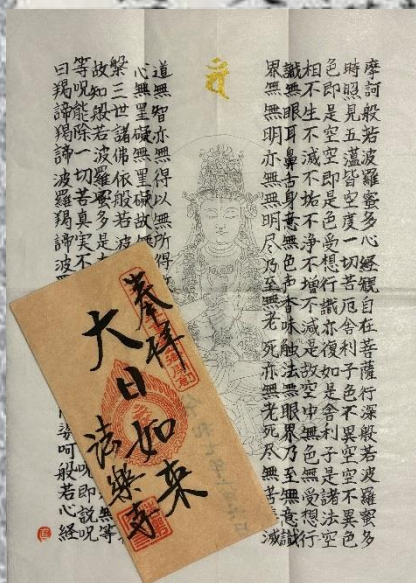 摩訶般若波羅蜜多心経観自在菩薩行深般若波羅蜜多
時照見五蘊皆空度一切苦厄舎利子色不異空空不異色
色即是空空即是色受想行識亦復如是舎利子是諸法空
相不生不滅不垢不浄不増不減是故空中無色無受想行
識無眼耳鼻舌身意無色声香味触法無眼界乃至無意識
界無無明亦無無明尽乃至無老死亦無老死尽無苦滅
道無智亦無得以無所得
心無罣礙無罣礙故
槃三世諸佛依般若波
故知般若波羅蜜多是 無等
等呪能除一切苦真実不 呪即説呪
曰羯諦羯諦波羅羯諦波 呵般若心経
奉拝
大日如来
法樂寺